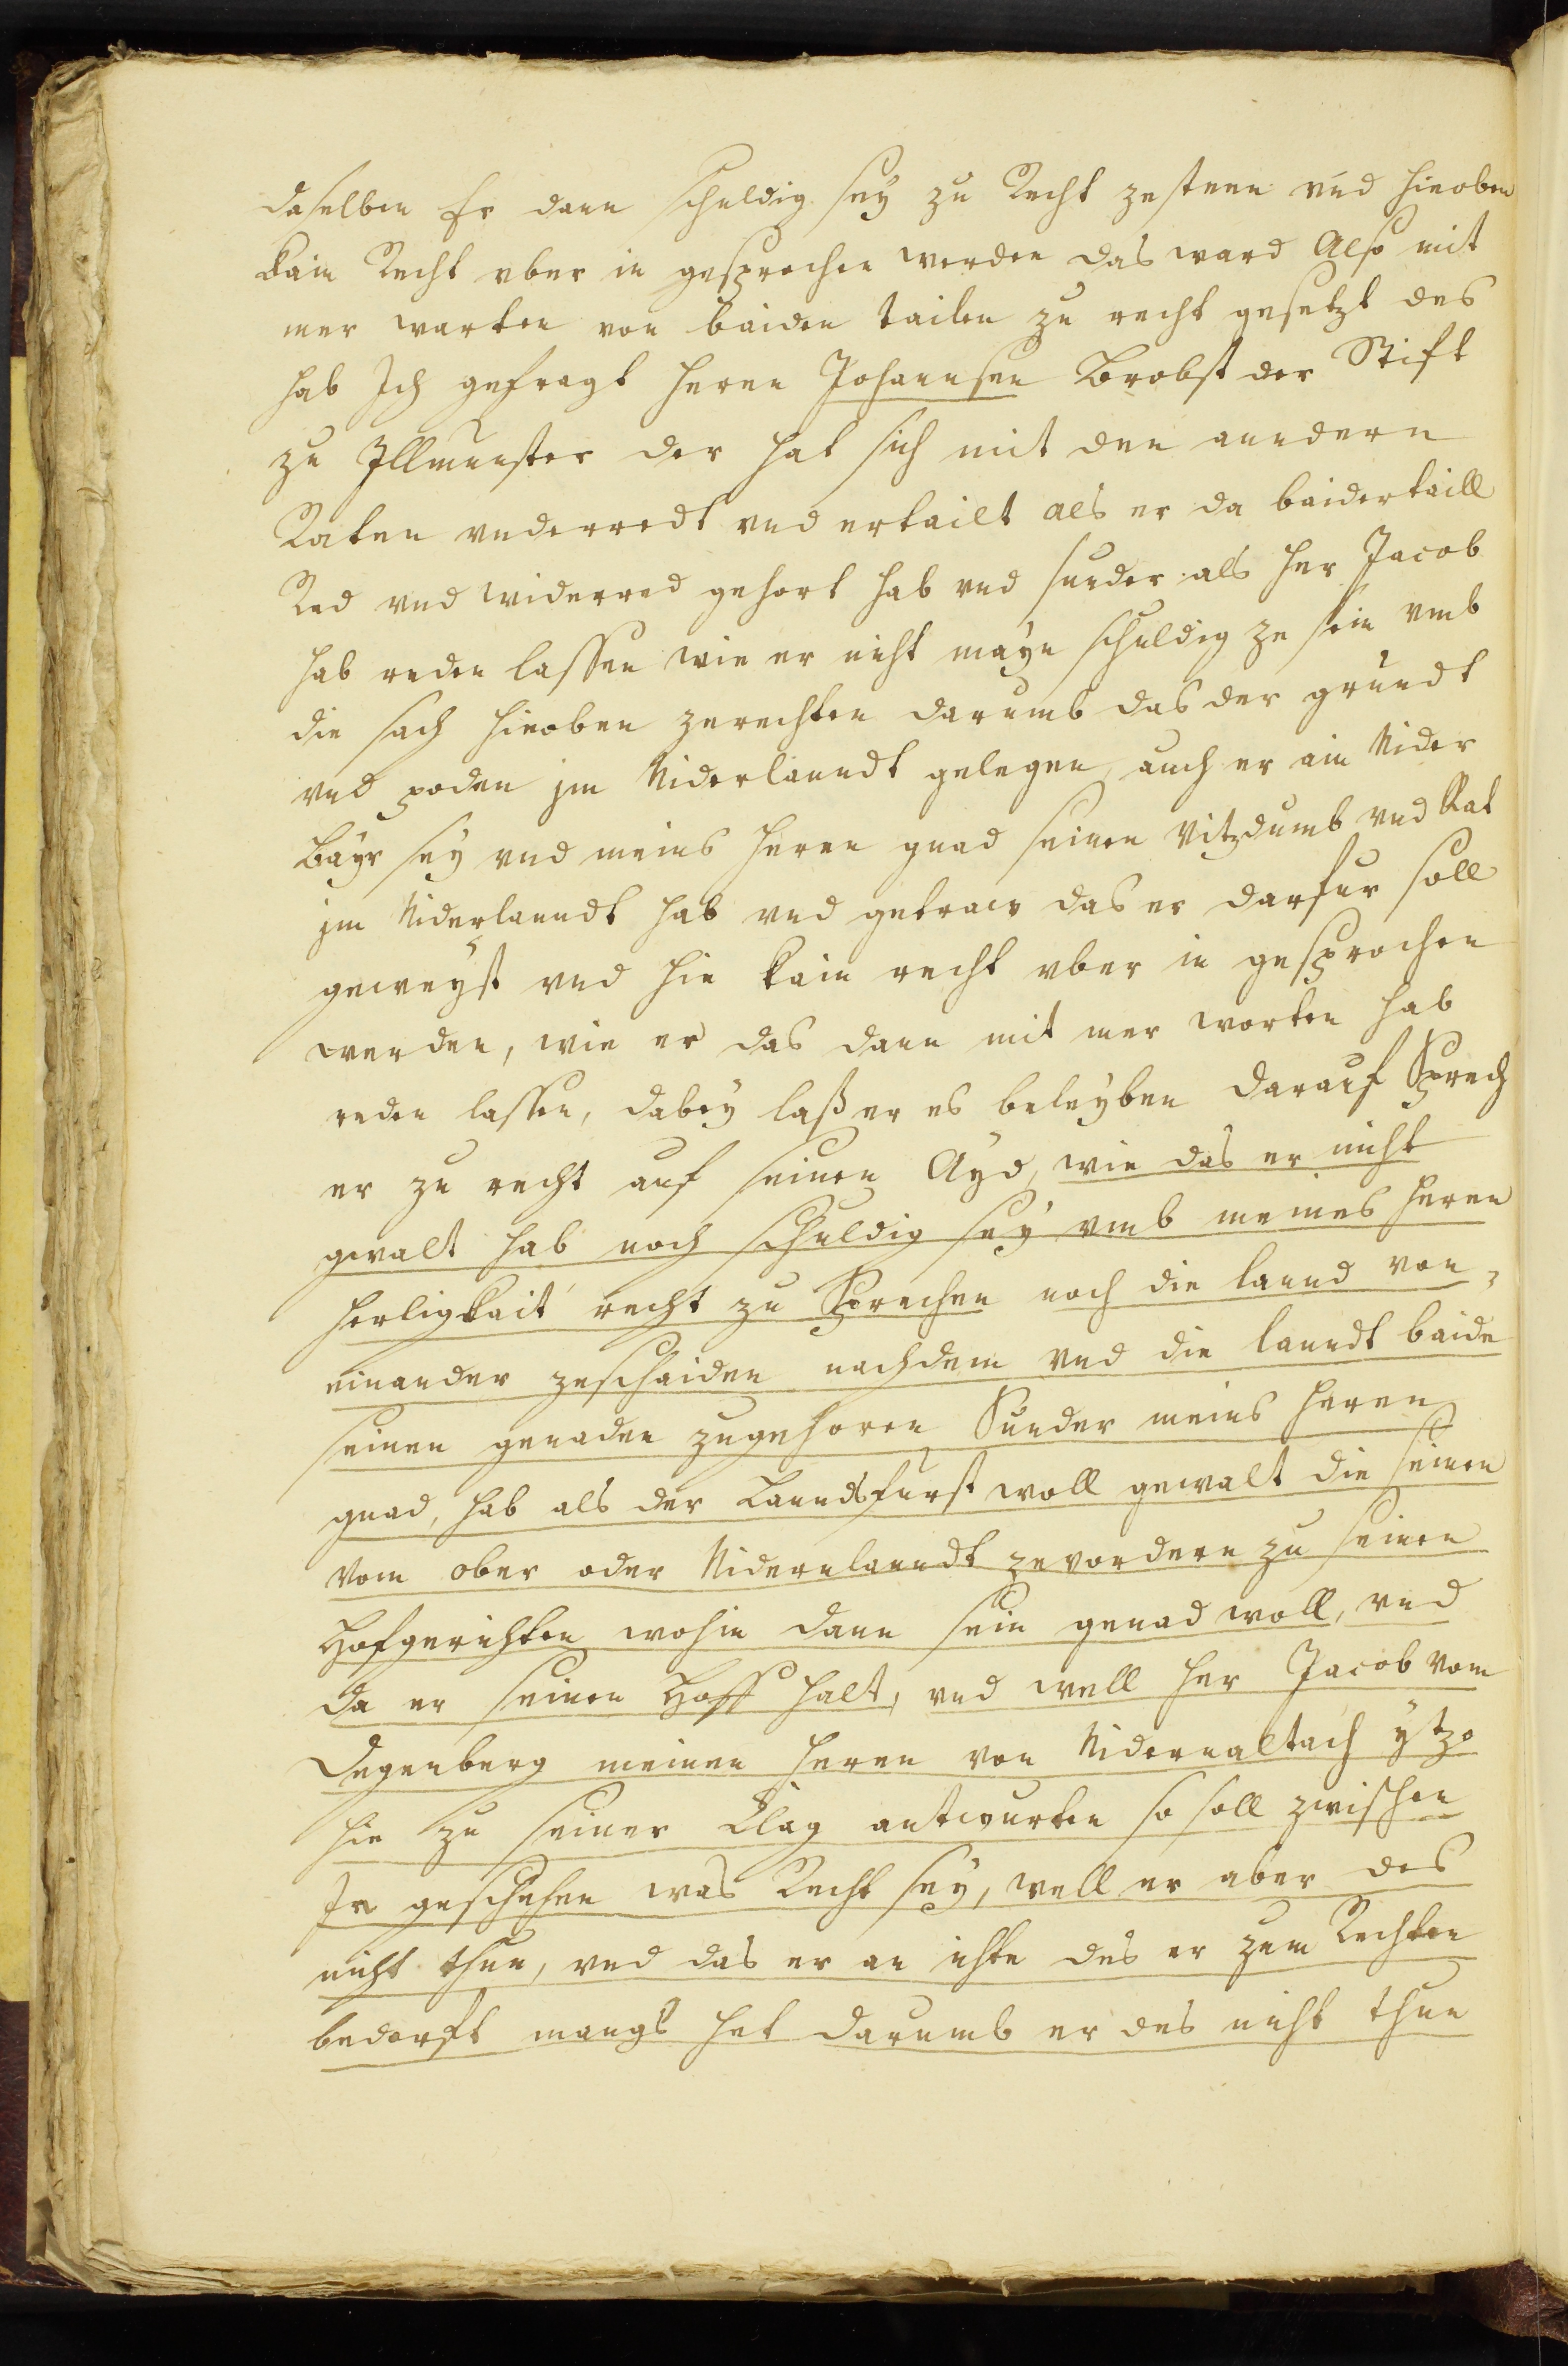 daselben Er dann schuldig sey zu Recht zesteen vnd hieoben
kain Recht vber in gesprochen werden das ward Also mit
mer warten von baiden tailen zu recht gesetzt des
hab Ich gefragt herrn Johannsen Brobst der Stift
zu Illmunster der hat sich mit den anndern
Raten vnderredt vnd ertailt als er da baidertaill
Red vnd widerred gehort hab vnd sunder als her Jacob
hab reden lassen wie er nicht mayn schuldig ze sein vmb
die sach hieoben zerechten darumb das der grundt
vnd poden jm Niderlanndt gelegen, auch er ain Nider
Bayr sey vnd meins herrn gnad seinen Vitzdumb vnd Rat
jm Niderlanndt hab vnd getraw das er darfur soll
geweyst vnd hie kain recht vber in gesprochen
werden, wie er das dann mit mer worten hab
reden lassen, dabey laß er es beleyben darauf Sprech
er zu recht auf seinen Ayd, wie das er nicht
gwalt hab noch schuldig sey vmb meines herrn
herligkait recht zu Sprechen noch die lannd von
einander zeschaiden nachdem vnd die lanndt baide
seinen genaden zugehoren Sunder meins herrn
gnad, hab als der Lanndsfurst woll gewalt die seinen
vom ober oder Nidernlanndt zevordern zu seinen
Hofgerichten wohin dann sein genad woll, vnd
da er seinen Hoff halt, vnd well her Jacob vom
Degenberg meinen herrn von Nidernaltach ytzo
hie zu seiner Clag antwurten so soll zwischen
Jr geschehen was Recht sey, well er aber des
nicht thun, vnd das er an ichte des er zum Rechten
bedorft mangl het darumb er des nicht thun